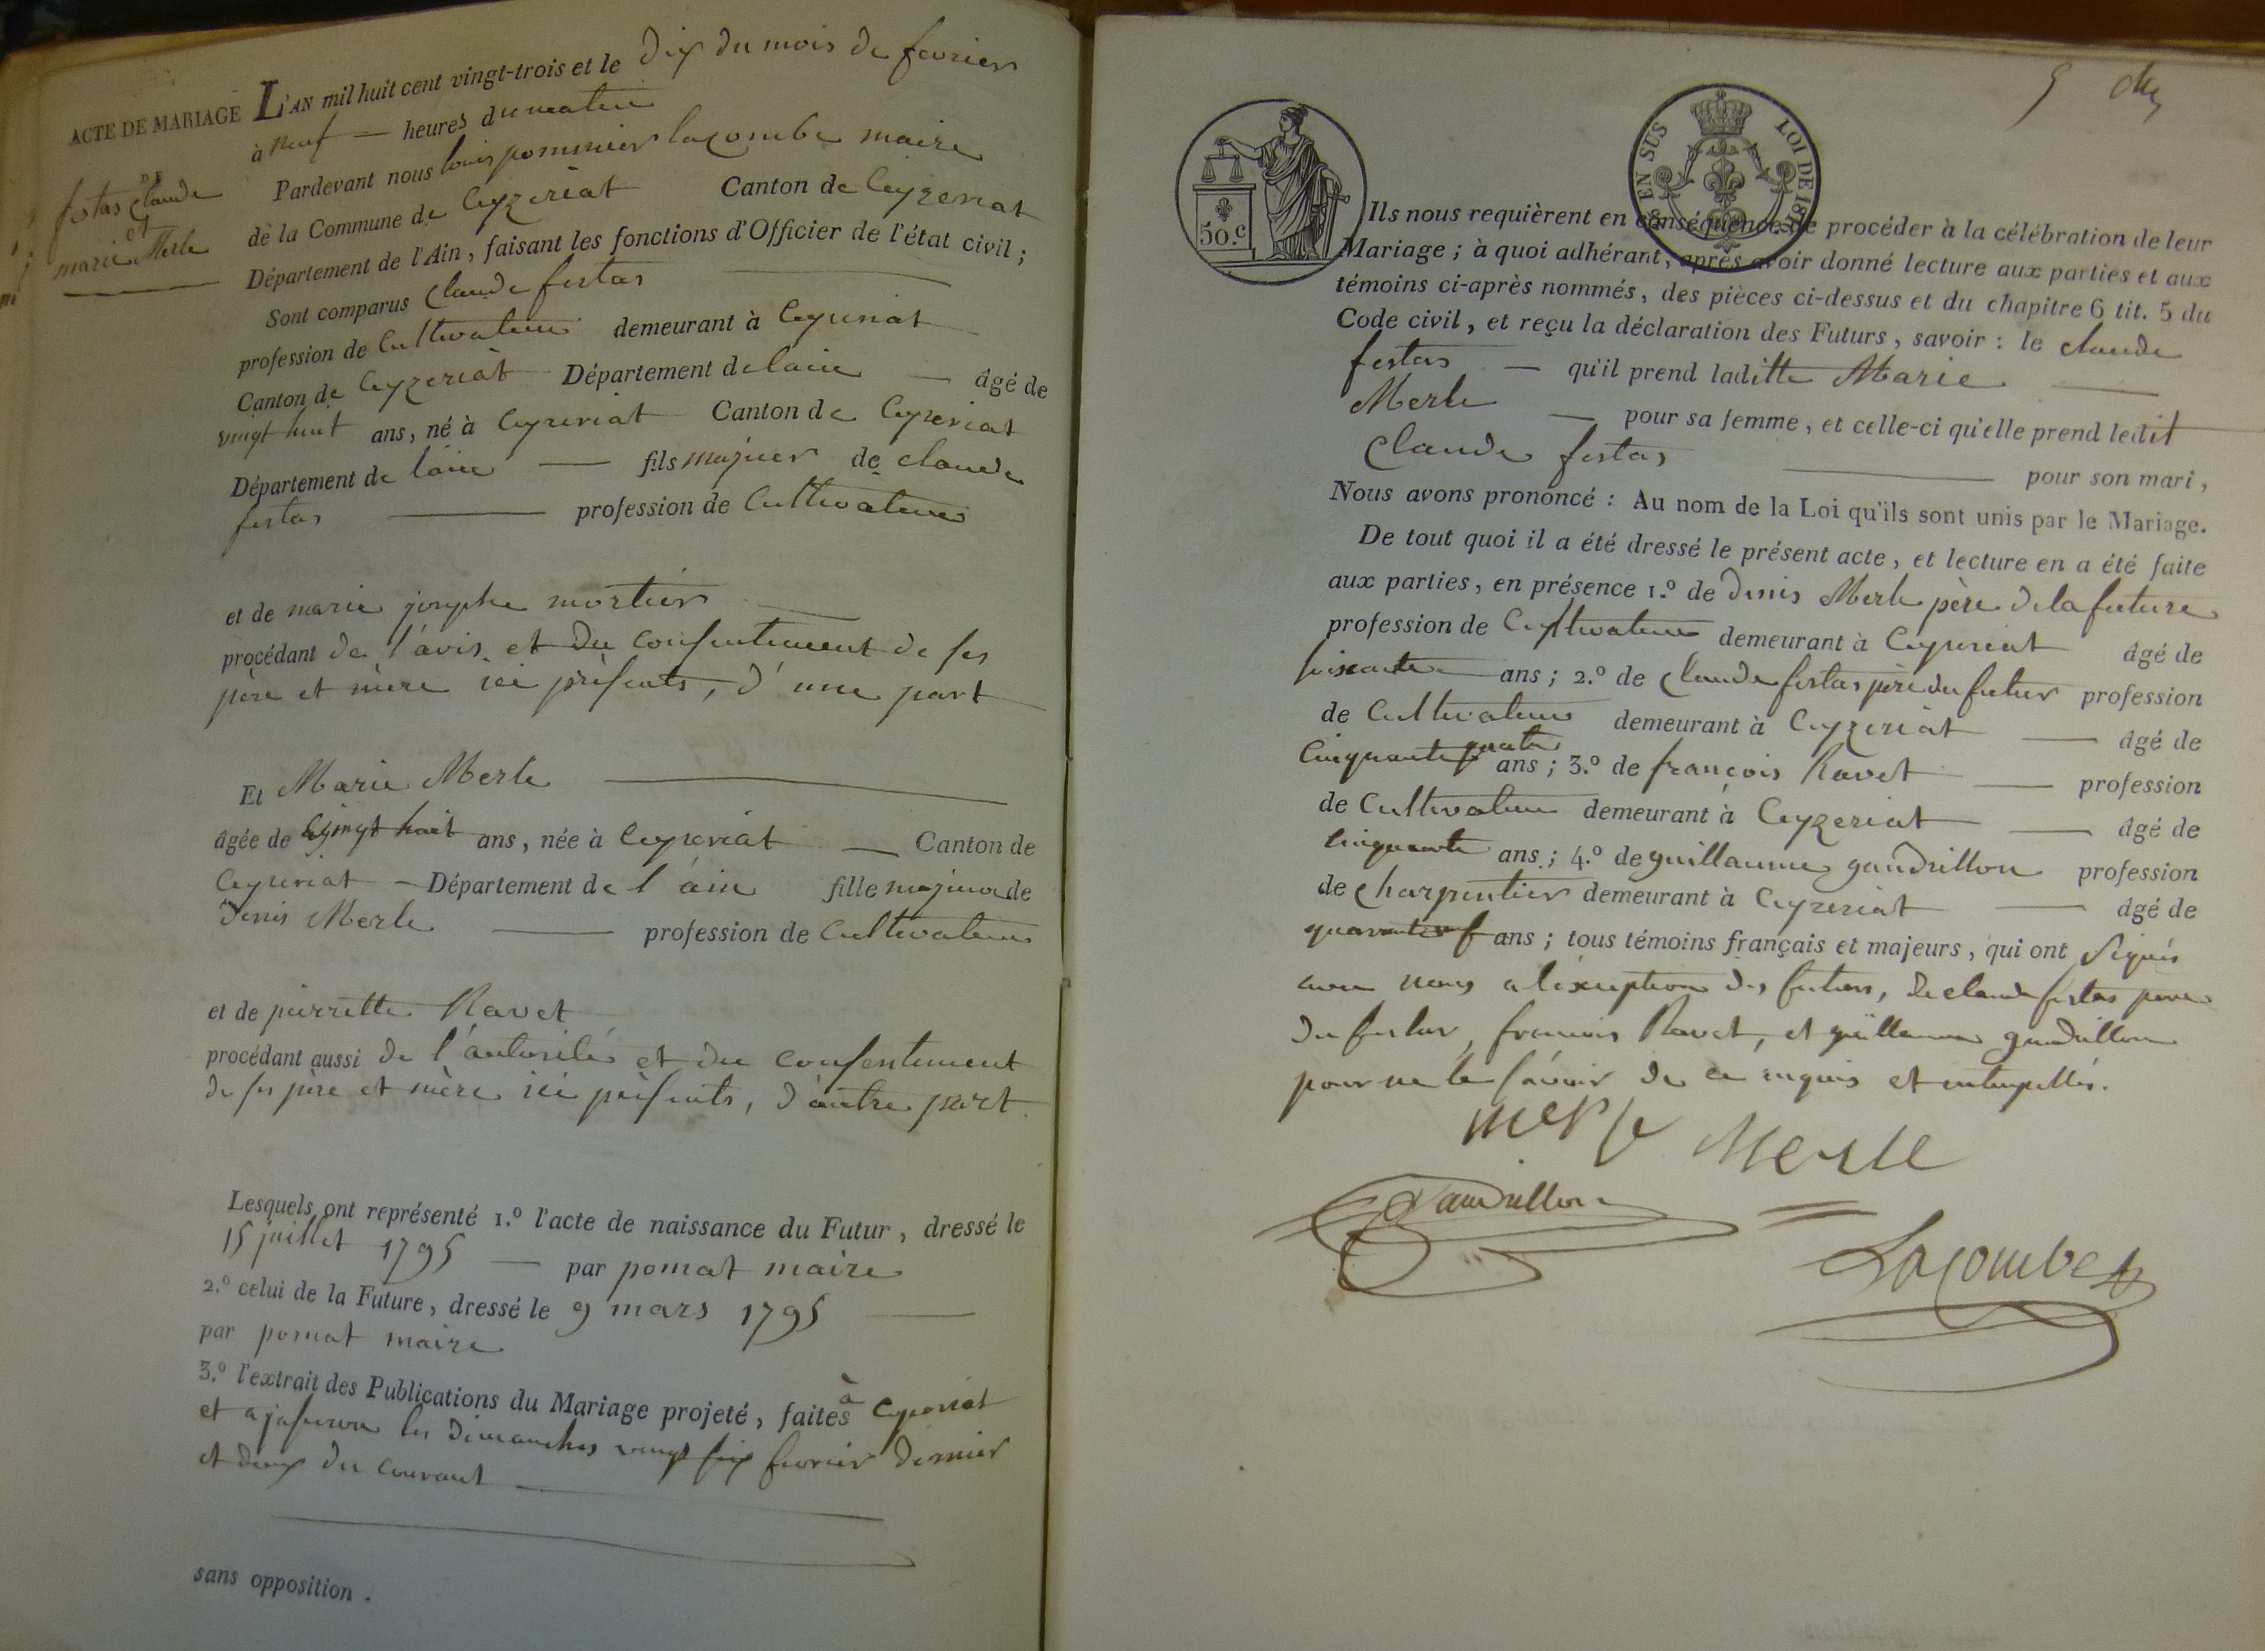 ACTE DE MARIAGE L'AN mil huit cent vingt-trois et le dix du mois de fevrier
à neuf — heures du matin
DE
festas claude
et
marie Merle
Pardevant nous louis pommier lacombe maire
de la Commune de Ceyzeriat Canton de Ceyzeriat
Département de l'Ain, faisant les fonctions d'Officier de l'état civil ;
Sont comparus Claude festas
profession de Cultivateur demeurant à Ceyzeriat
Canton de Ceyzeriat Département de laine — âgé de
vingt huit ans, né à Ceyzeriat Canton de Ceyzeriat
Département de laine — fils majeur de claude
festas — profession de Cultivateur
et de marie josephe mortier
procédant de l'avis et du consentement de ses
père et mère ici présents, d'une part
Et Marie Merle
âgée de vingt huit ans, née à Ceyzeriat — Canton de
Ceyzeriat — Département de l'ain fille majeure de
Denis Merle — profession de Cultivateur
et de pierrette Ravet
procédant aussi de l'autorité et du consentement
de ses père et mère ici présents, d'autre part.
Lesquels ont représenté 1.º l'acte de naissance du Futur, dressé le
15 juillet 1795 — par pomat maire
2.º celui de la Future, dressé le 9 mars 1795
par pomat maire
3.º l'extrait des Publications du Mariage projeté, faites à Ceyzeriat
et a jasseron les dimanches vingt six fevrier dernier
et deux du courant
sans opposition.
5
50.c
EN SUS LOI DE 18
Ils nous requièrent en conséquence de procéder à la célébration de leur
Mariage ; à quoi adhérant, après avoir donné lecture aux parties et aux
témoins ci-après nommés, des pièces ci-dessus et du chapitre 6 tit. 5 du
Code civil, et reçu la déclaration des Futurs, savoir : le claude
festas — qu'il prend laditte Marie
Merle — pour sa femme, et celle-ci qu'elle prend ledit
Claude festas — pour son mari,
Nous avons prononcé : Au nom de la Loi qu'ils sont unis par le Mariage.
De tout quoi il a été dressé le présent acte, et lecture en a été faite
aux parties, en présence 1.º de Denis Merle père de la future
profession de Cultivateur demeurant à Ceyzeriat âgé de
soixante ans ; 2.º de Claude festas père du futur profession
de Cultivateur demeurant à Ceyzeriat — âgé de
Cinquante quatre ans ; 3.º de françois Ravet — profession
de Cultivateur demeurant à Ceyzeriat — âgé de
Cinquante ans ; 4.º de guillaume gaudrillon profession
de charpentier demeurant à Ceyzeriat — âgé de
quarante neuf ans ; tous témoins français et majeurs, qui ont signés
avec nous a l'exeption des futurs, de claude festas pere
du futur, francois Ravet, et guillaume gaudrillon
pour ne le sávoir de ce enquis et interpellés.
merle Merle
Gaudrillon
Lacombe